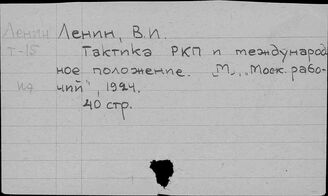 Ленин Ленин, В.И.
Т-15 Тактика РКП и международ
ное положение. „М.„, „Моск. рабо-
чий", 1924.
40 стр.